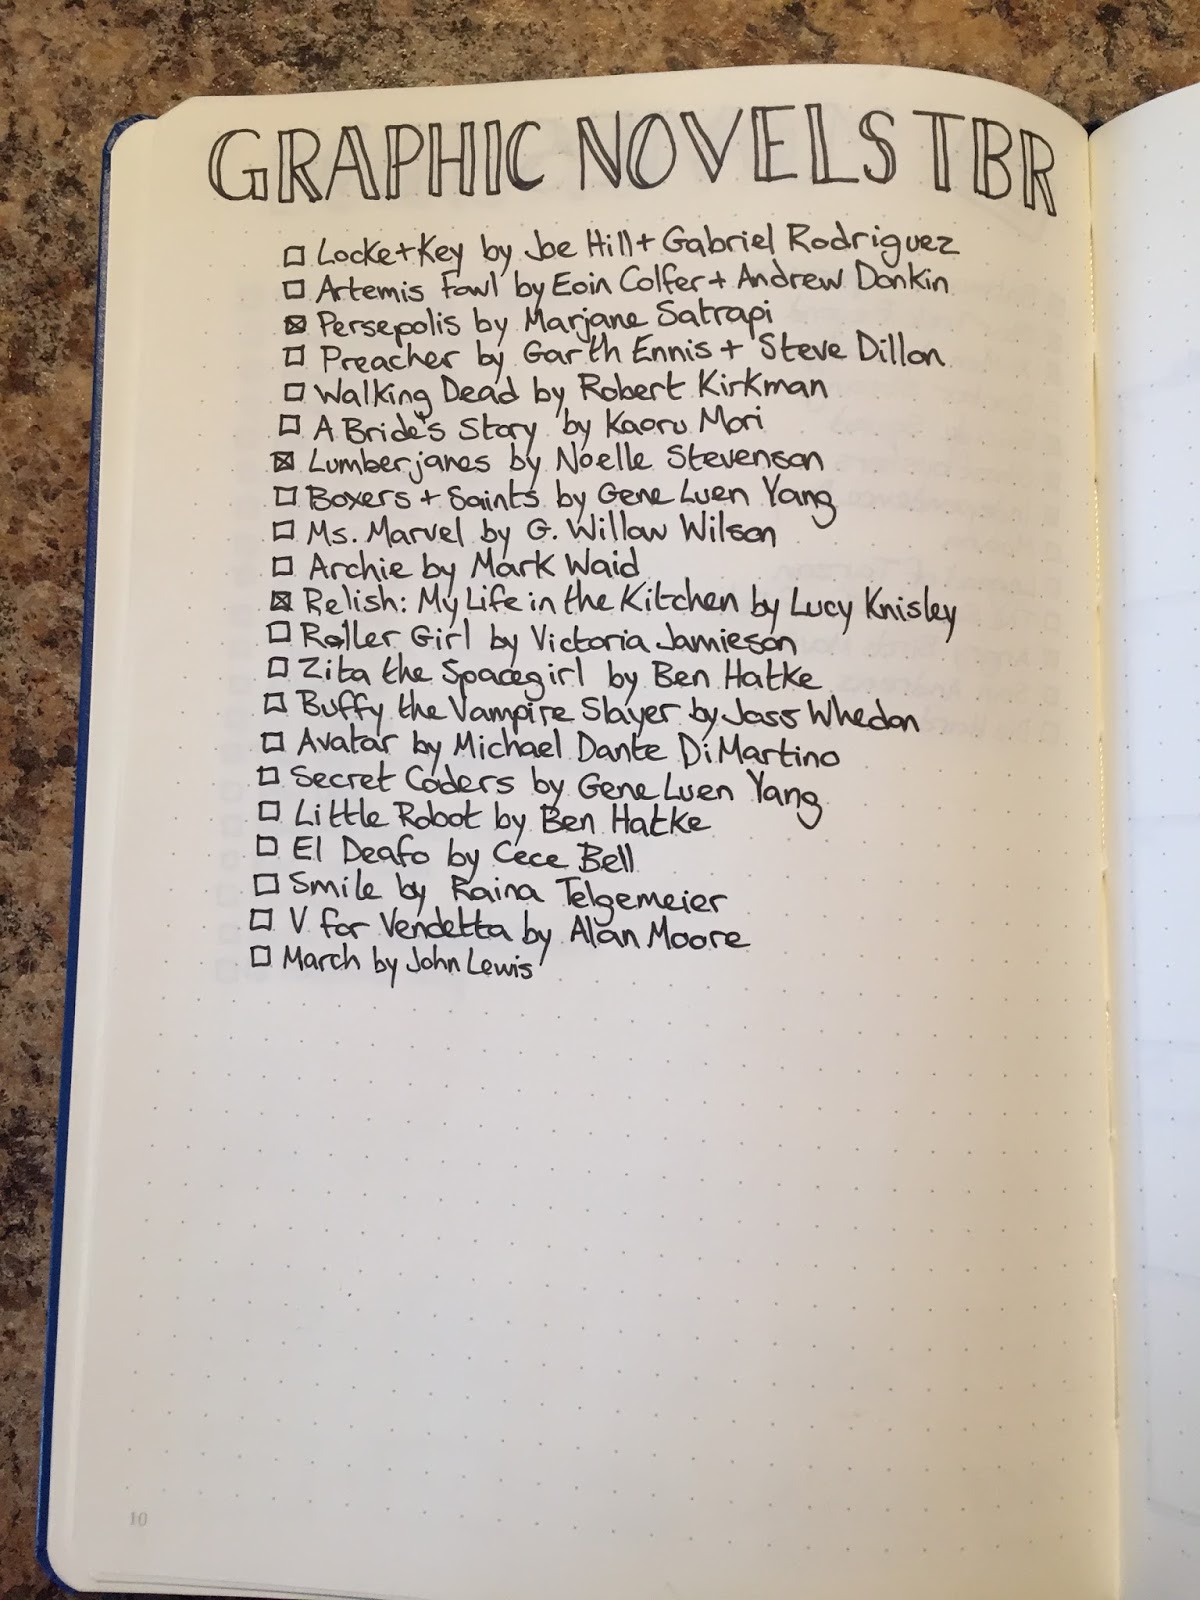 GRAPHIC NOVELS TBR
☐ Locke+Key by Joe Hill + Gabriel Rodriguez
☐ Artemis Fowl by Eoin Colfer + Andrew Donkin
☒ Persepolis by Marjane Satrapi
☐ Preacher by Garth Ennis + Steve Dillon
☐ Walking Dead by Robert Kirkman
☐ A Bride's Story by Kaoru Mori
☒ Lumberjanes by Noelle Stevenson
☐ Boxers + Saints by Gene Luen Yang
☐ Ms. Marvel by G. Willow Wilson
☐ Archie by Mark Waid
☒ Relish: My Life in the Kitchen by Lucy Knisley
☐ Roller Girl by Victoria Jamieson
☐ Zita the Spacegirl by Ben Hatke
☐ Buffy the Vampire Slayer by Joss Whedon
☐ Avatar by Michael Dante DiMartino
☐ Secret Coders by Gene Luen Yang
☐ Little Robot by Ben Hatke
☐ El Deafo by Cece Bell
☐ Smile by Raina Telgemeier
☐ V for Vendetta by Alan Moore
☐ March by John Lewis
10